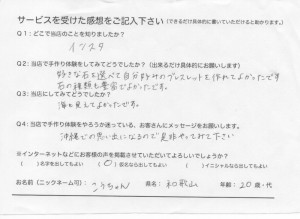 サービスを受けた感想をご記入下さい（できるだけ具体的に書いていただけると助かります。）
Q1：どこで当店のことを知りましたか？
インスタ
Q2：当店で手作り体験をしてみてどうでしたか？（出来るだけ具体的にお願いします）
好きな石を選べて自分好みのブレスレットを作れてよかったです
石の種類も豊富でよかったです。
Q3：当店にしてみてどうでしたか？
海も見えてよかったです。
Q4：当店で手作り体験をやろうか迷っている、お客さんにメッセージをお願いします。
沖縄での思い出になるので是非やってみて下さい
※インターネットなどにお客様の声を掲載させていただいてよろしいでしょうか？
（　）名字を出してもよい　（○）仮名なら出してもよい　（　）イニシャルなら出してもよい
お名前（ニックネーム可）：こうちゃん　県名：和歌山　年齢：20歳・代